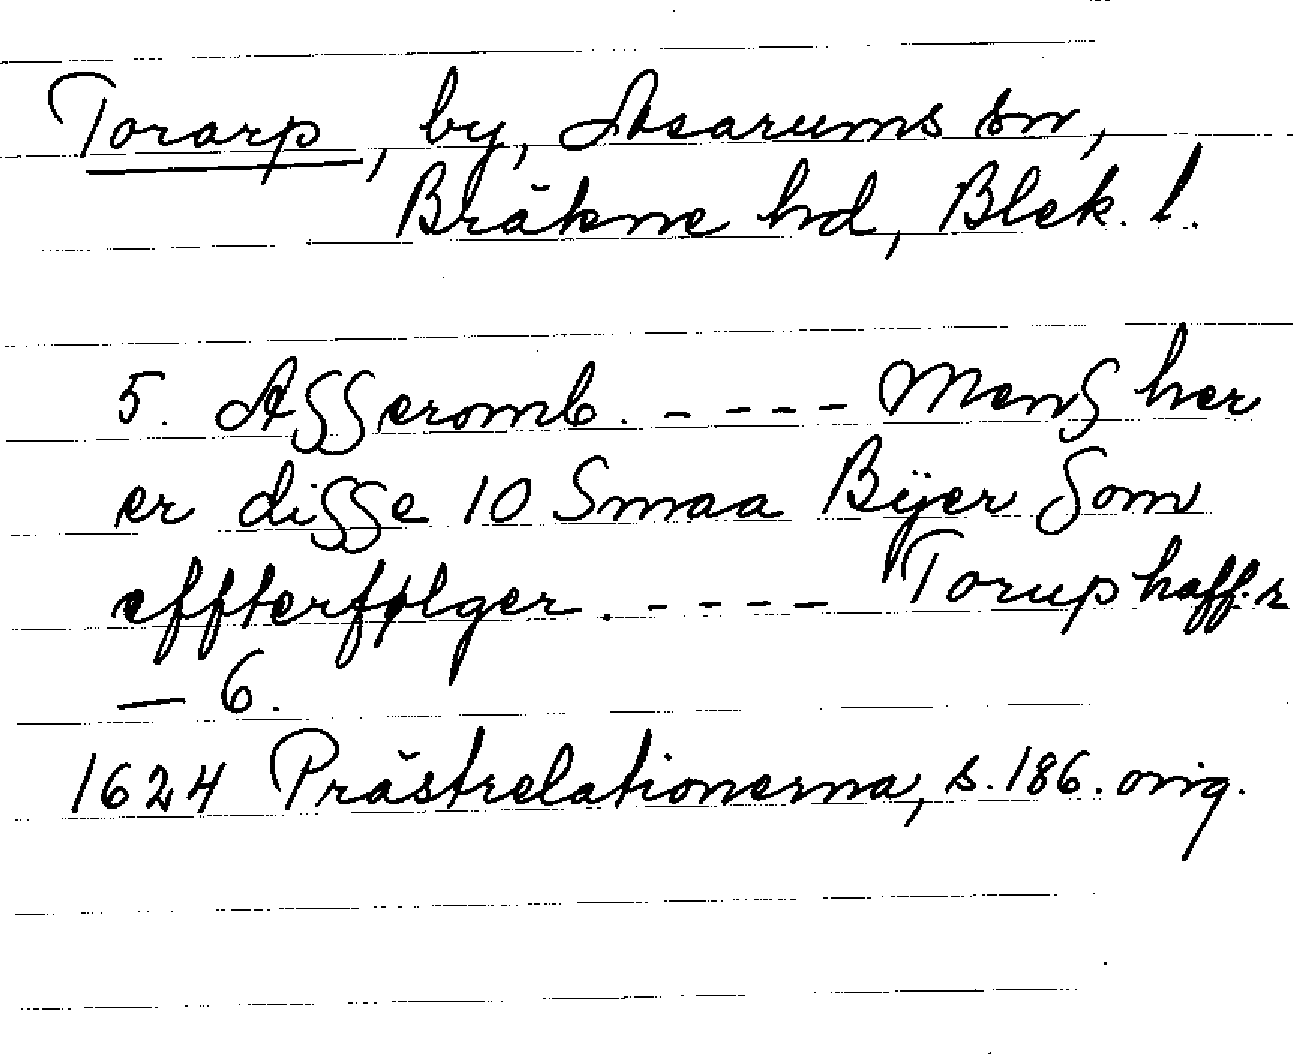 Torarp, by, Asarums sn,
Bräkne hd, Blek. l.
5. Aſſeromb. - - - - Menſ her
er diſſe 10 Smaa Bÿer ſom
effterfølger. - - - - Torup haff.r
— 6.
1624 Prästrelationerna, s. 186. orig.